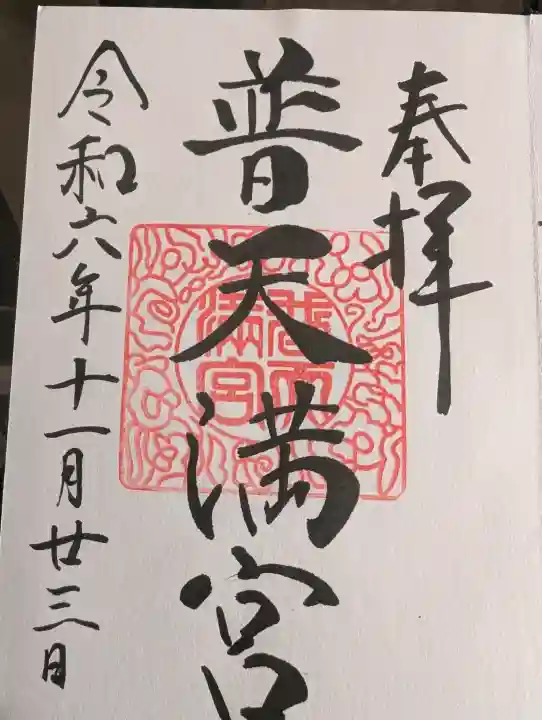 奉拝
普天満宮
令和六年十一月廿三日
普天満宮